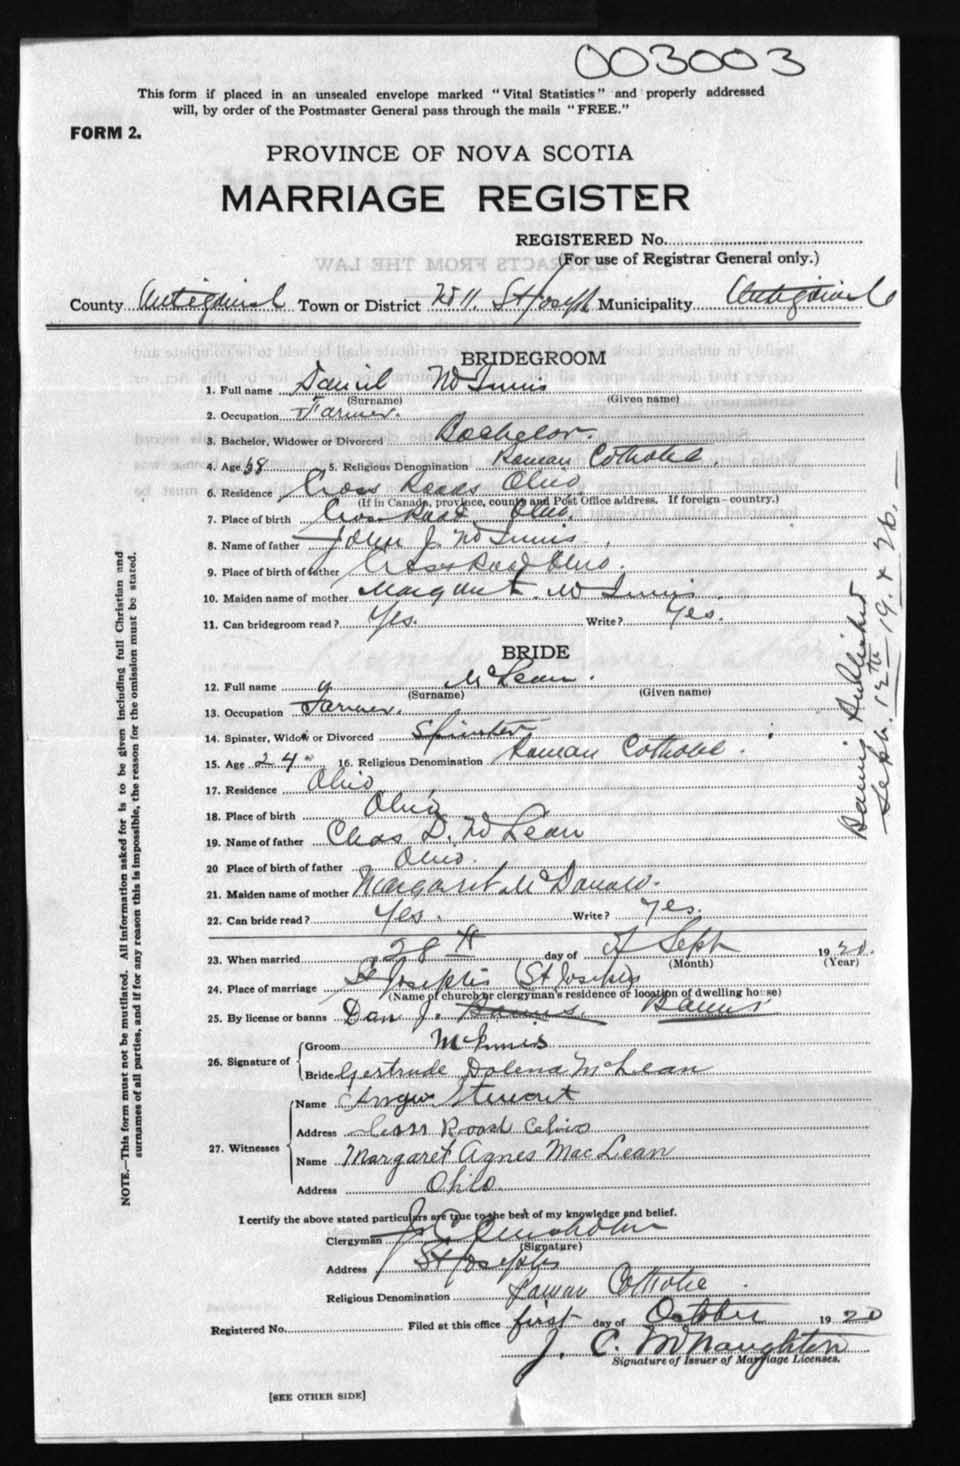 003003
This form if placed in an unsealed envelope marked "Vital Statistics" and properly addressed
will, by order of the Postmaster General pass through the mails "FREE."
FORM 2.
PROVINCE OF NOVA SCOTIA
MARRIAGE REGISTER
REGISTERED No.
(For use of Registrar General only.)
County Antigonish Town or District No 11 St Joseph Municipality Antigonish
BRIDEGROOM
1. Full name Daniel McInnis
(Surname) (Given name)
2. Occupation Farmer.
3. Bachelor, Widower or Divorced Bachelor.
4. Age 5. Religious Denomination Roman Catholic.
6. Residence Cross Roads Ohio
(If in Canada, province, county and Post Office address. If foreign - country.)
7. Place of birth Cross Road Ohio.
8. Name of father John J. McInnis.
9. Place of birth of father Cross Road Ohio.
10. Maiden name of mother Margaret McInnis.
11. Can bridegroom read? Yes. Write? Yes.
BRIDE
12. Full name McLean.
(Surname) (Given name)
13. Occupation Farmer.
14. Spinster, Widow or Divorced Spinster
15. Age 24 16. Religious Denomination Roman Catholic.
17. Residence Ohio
18. Place of birth Ohio
19. Name of father Chas D. McLean
20 Place of birth of father Ohio.
21. Maiden name of mother Margaret McDonald.
22. Can bride read? Yes. Write? Yes.
23. When married 28th day of of Sept 1920.
(Month) (Year)
24. Place of marriage St Josephs (St Josephs
(Name of church or clergyman's residence or location of dwelling house)
25. By license or banns Dan J. Banns. Banns
26. Signature of Groom McInnis
Bride Gertrude Dolena McLean
27. Witnesses
Name Angus Stewart
Address Cross Road
Name Margaret Agnes MacLean
Address Ohio
I certify the above stated particulars are true to the best of my knowledge and belief.
Clergyman J. C. Chisholm
(Signature)
Address St Josephs
Religious Denomination Roman Catholic
Registered No. Filed at this office first day of October 1920
J. C. McNaughton
Signature of Issuer of Marriage Licenses.
[SEE OTHER SIDE]
NOTE.—This form must not be mutilated. All information asked for is to be given including full Christian and
surnames of all parties, and if for any reason this is impossible, the reason for the omission must be stated.
Banns Published
Sept. 12th 19. & 26.
EXTRACTS FROM THE LAW